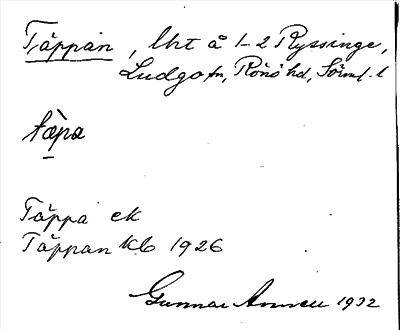 Täppan, lht å 1-2 Ryssinge,
Ludgo sn, Rönö hd, Sörml. l
tæ̀pa
Täppa ek
Täppan kb 1926
Gunnar 1932